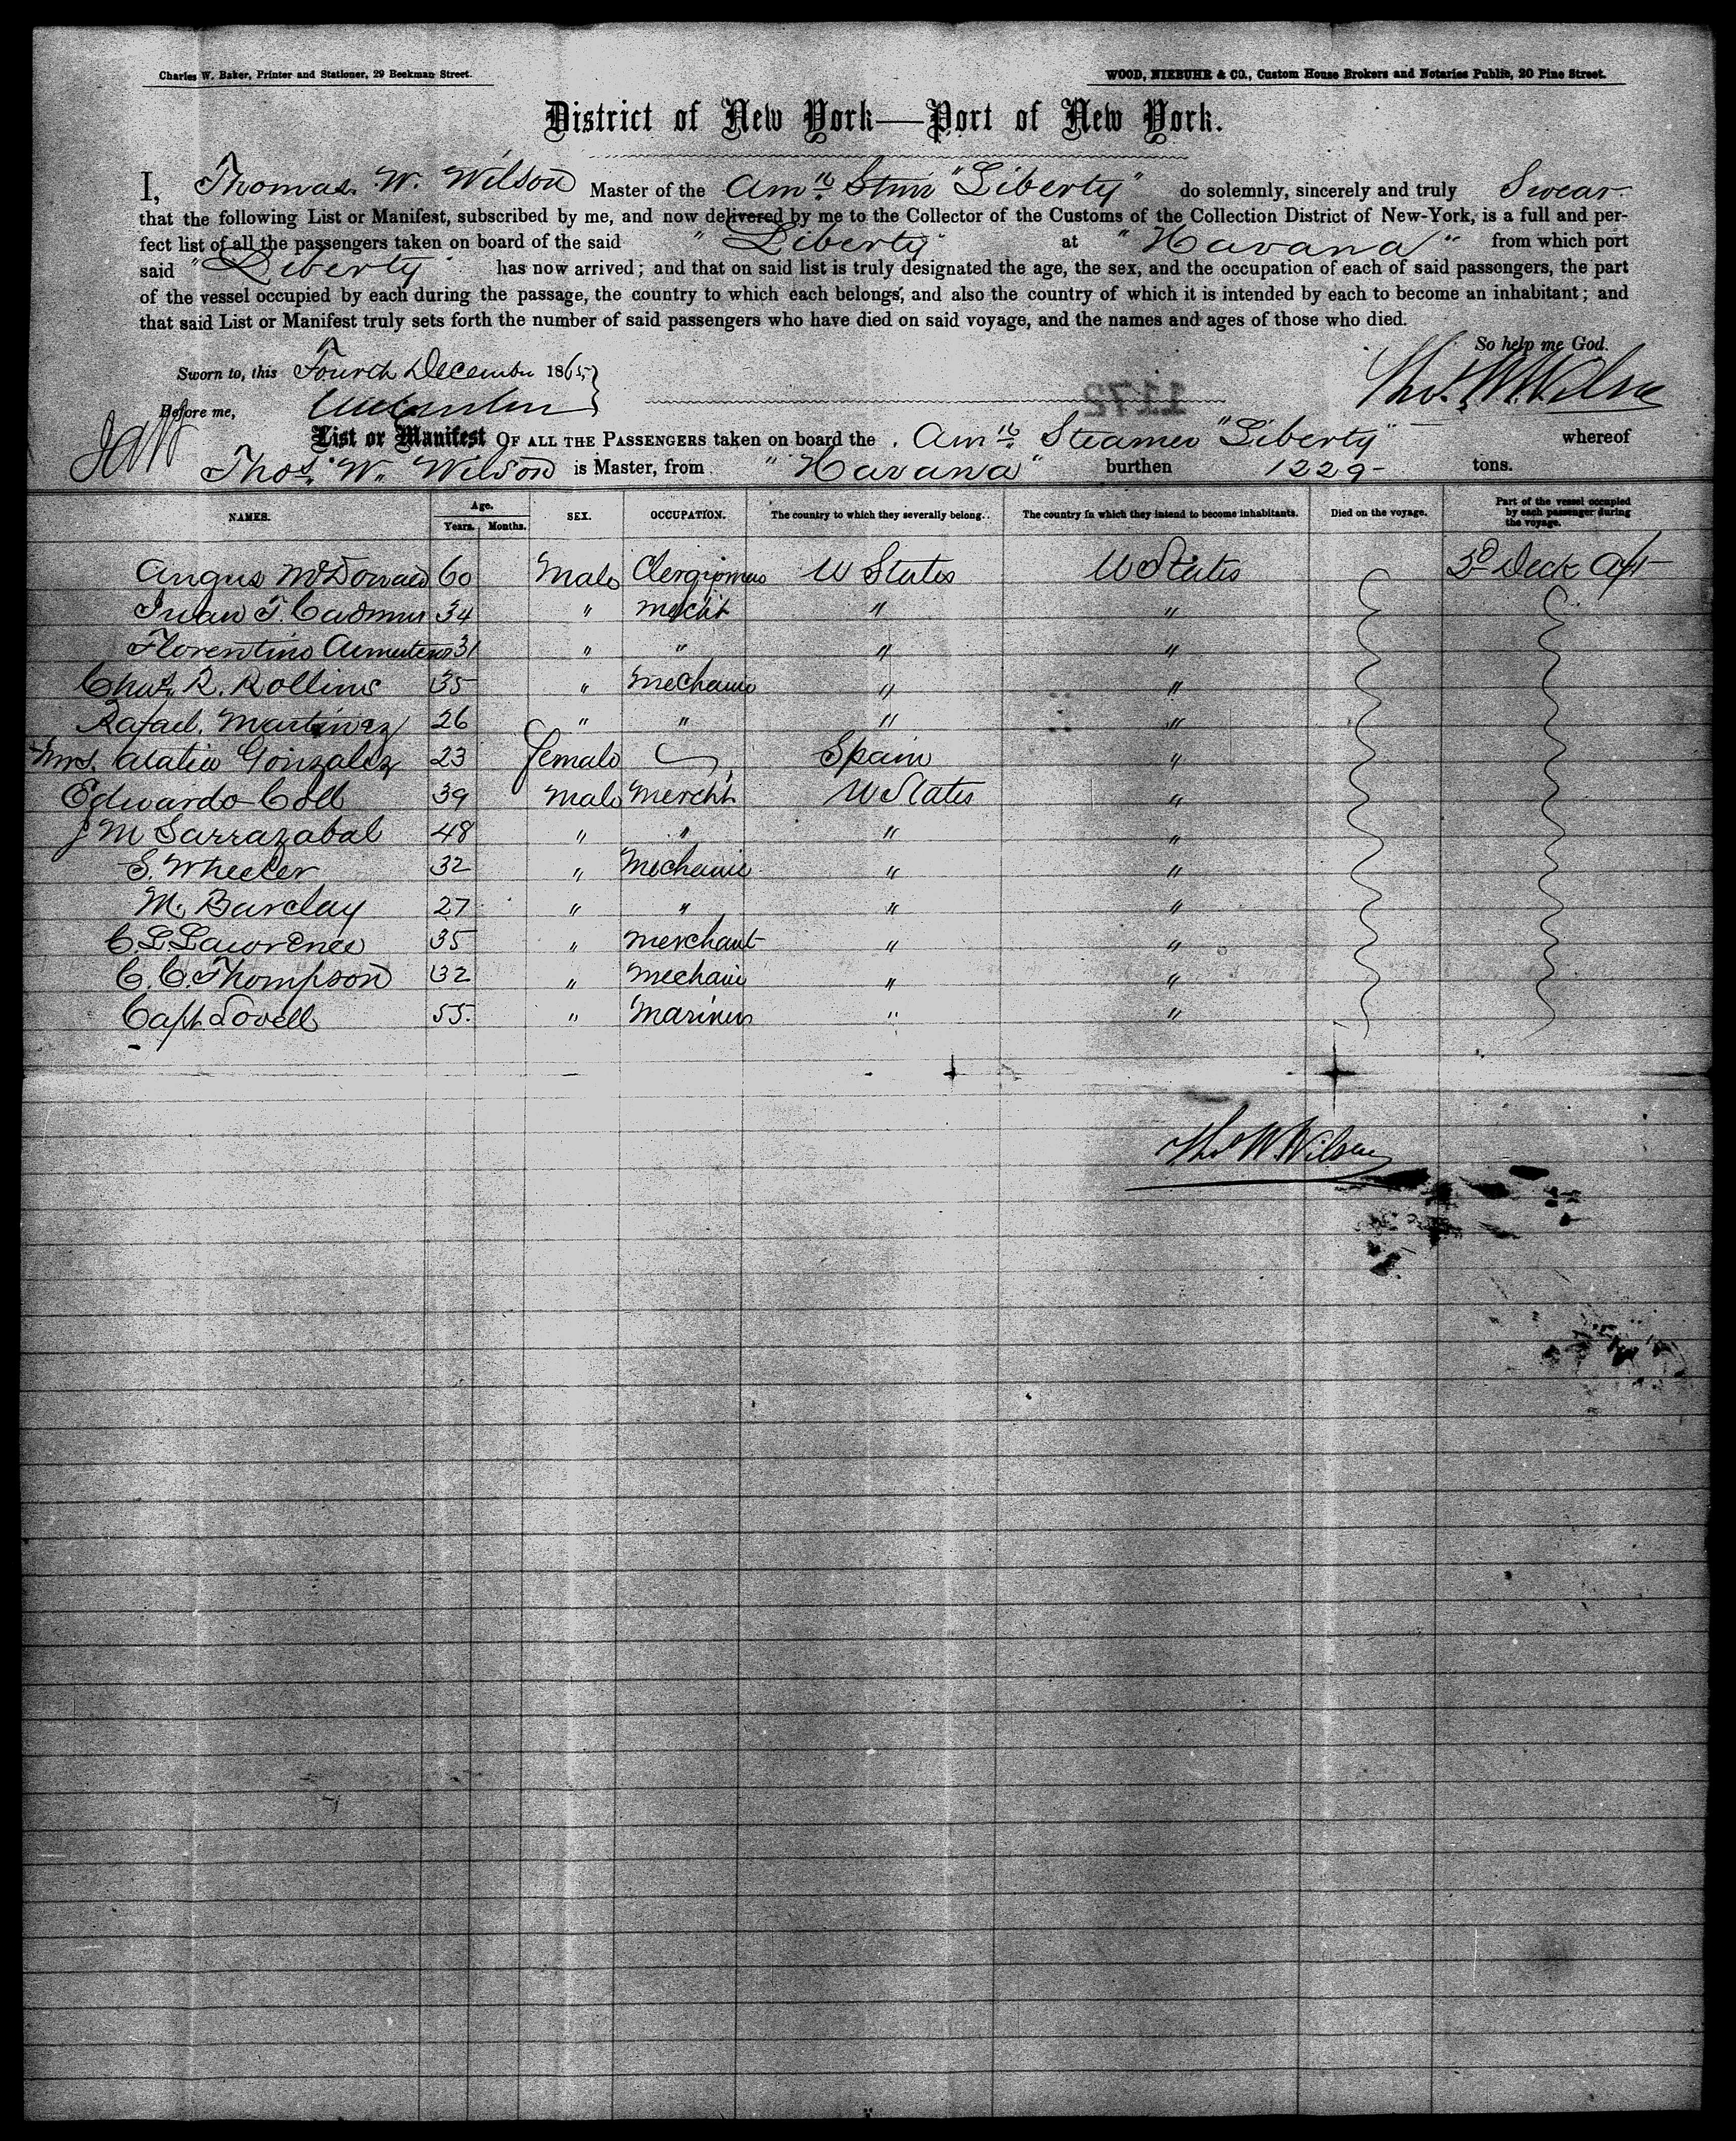 Charles W. Baker, Printer and Stationer, 29 Beekman Street.
WOOD, NIEBUHR & CO., Custom House Brokers and Notaries Public, 20 Pine Street.
District of New York—Port of New York.
I, Thomas W. Wilson Master of the Amn Stmr "Liberty" do solemnly, sincerely and truly Swear
that the following List or Manifest, subscribed by me, and now delivered by me to the Collector of the Customs of the Collection District of New-York, is a full and per-
fect list of all the passengers taken on board of the said "Liberty" at "Havana" from which port
said "Liberty" has now arrived; and that on said list is truly designated the age, the sex, and the occupation of each of said passengers, the part
of the vessel occupied by each during the passage, the country to which each belongs, and also the country of which it is intended by each to become an inhabitant; and
that said List or Manifest truly sets forth the number of said passengers who have died on said voyage, and the names and ages of those who died.
So help me God.
Sworn to, this Fourth December 1865
Thos. W. Wilson
Before me,
List or Manifest OF ALL THE PASSENGERS taken on board the Amn Steamer "Liberty" whereof
Thos. W. Wilson is Master, from "Havana" burthen 1229 tons.
NAMES. Age. Years. Months. SEX. OCCUPATION. The country to which they severally belong. The country in which they intend to become inhabitants. Died on the voyage. Part of the vessel occupied by each passenger during the voyage.
Angus McDonald 60 Male Clergiman U States U States Deck Aft
Juan F. Cadmus 34 " mercht " "
Florentino 31 " " " "
Chas. R. Rollins 35 " Mechanic " "
Rafael Martinez 26 " " " "
Mrs. Atalia Gonzalez 23 female Spain "
Edwardo Coll 39 Male Mercht U States "
J M Sarrazabal 48 " " " "
S. Wheeler 32 " Mechanic " "
M. Barclay 27 " " " "
C. L. Lawrence 35 " merchant " "
C. C. Thompson 32 " mechanic " "
Capt Lovell 55. " Mariner " "
Thos W. Wilson